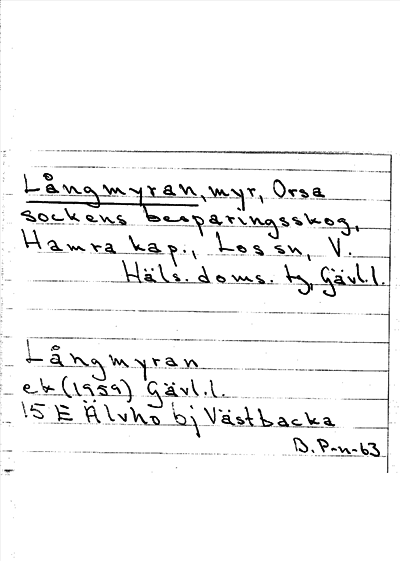 Långmyran, myr, Orsa
sockens besparingsskog,
Hamra kap., Los sn, V.
Häls. doms. tg, Gävl.l.
Långmyran
ek (1959) Gävl.l.
15 E Älvho bj Västbacka
B. P-n-63